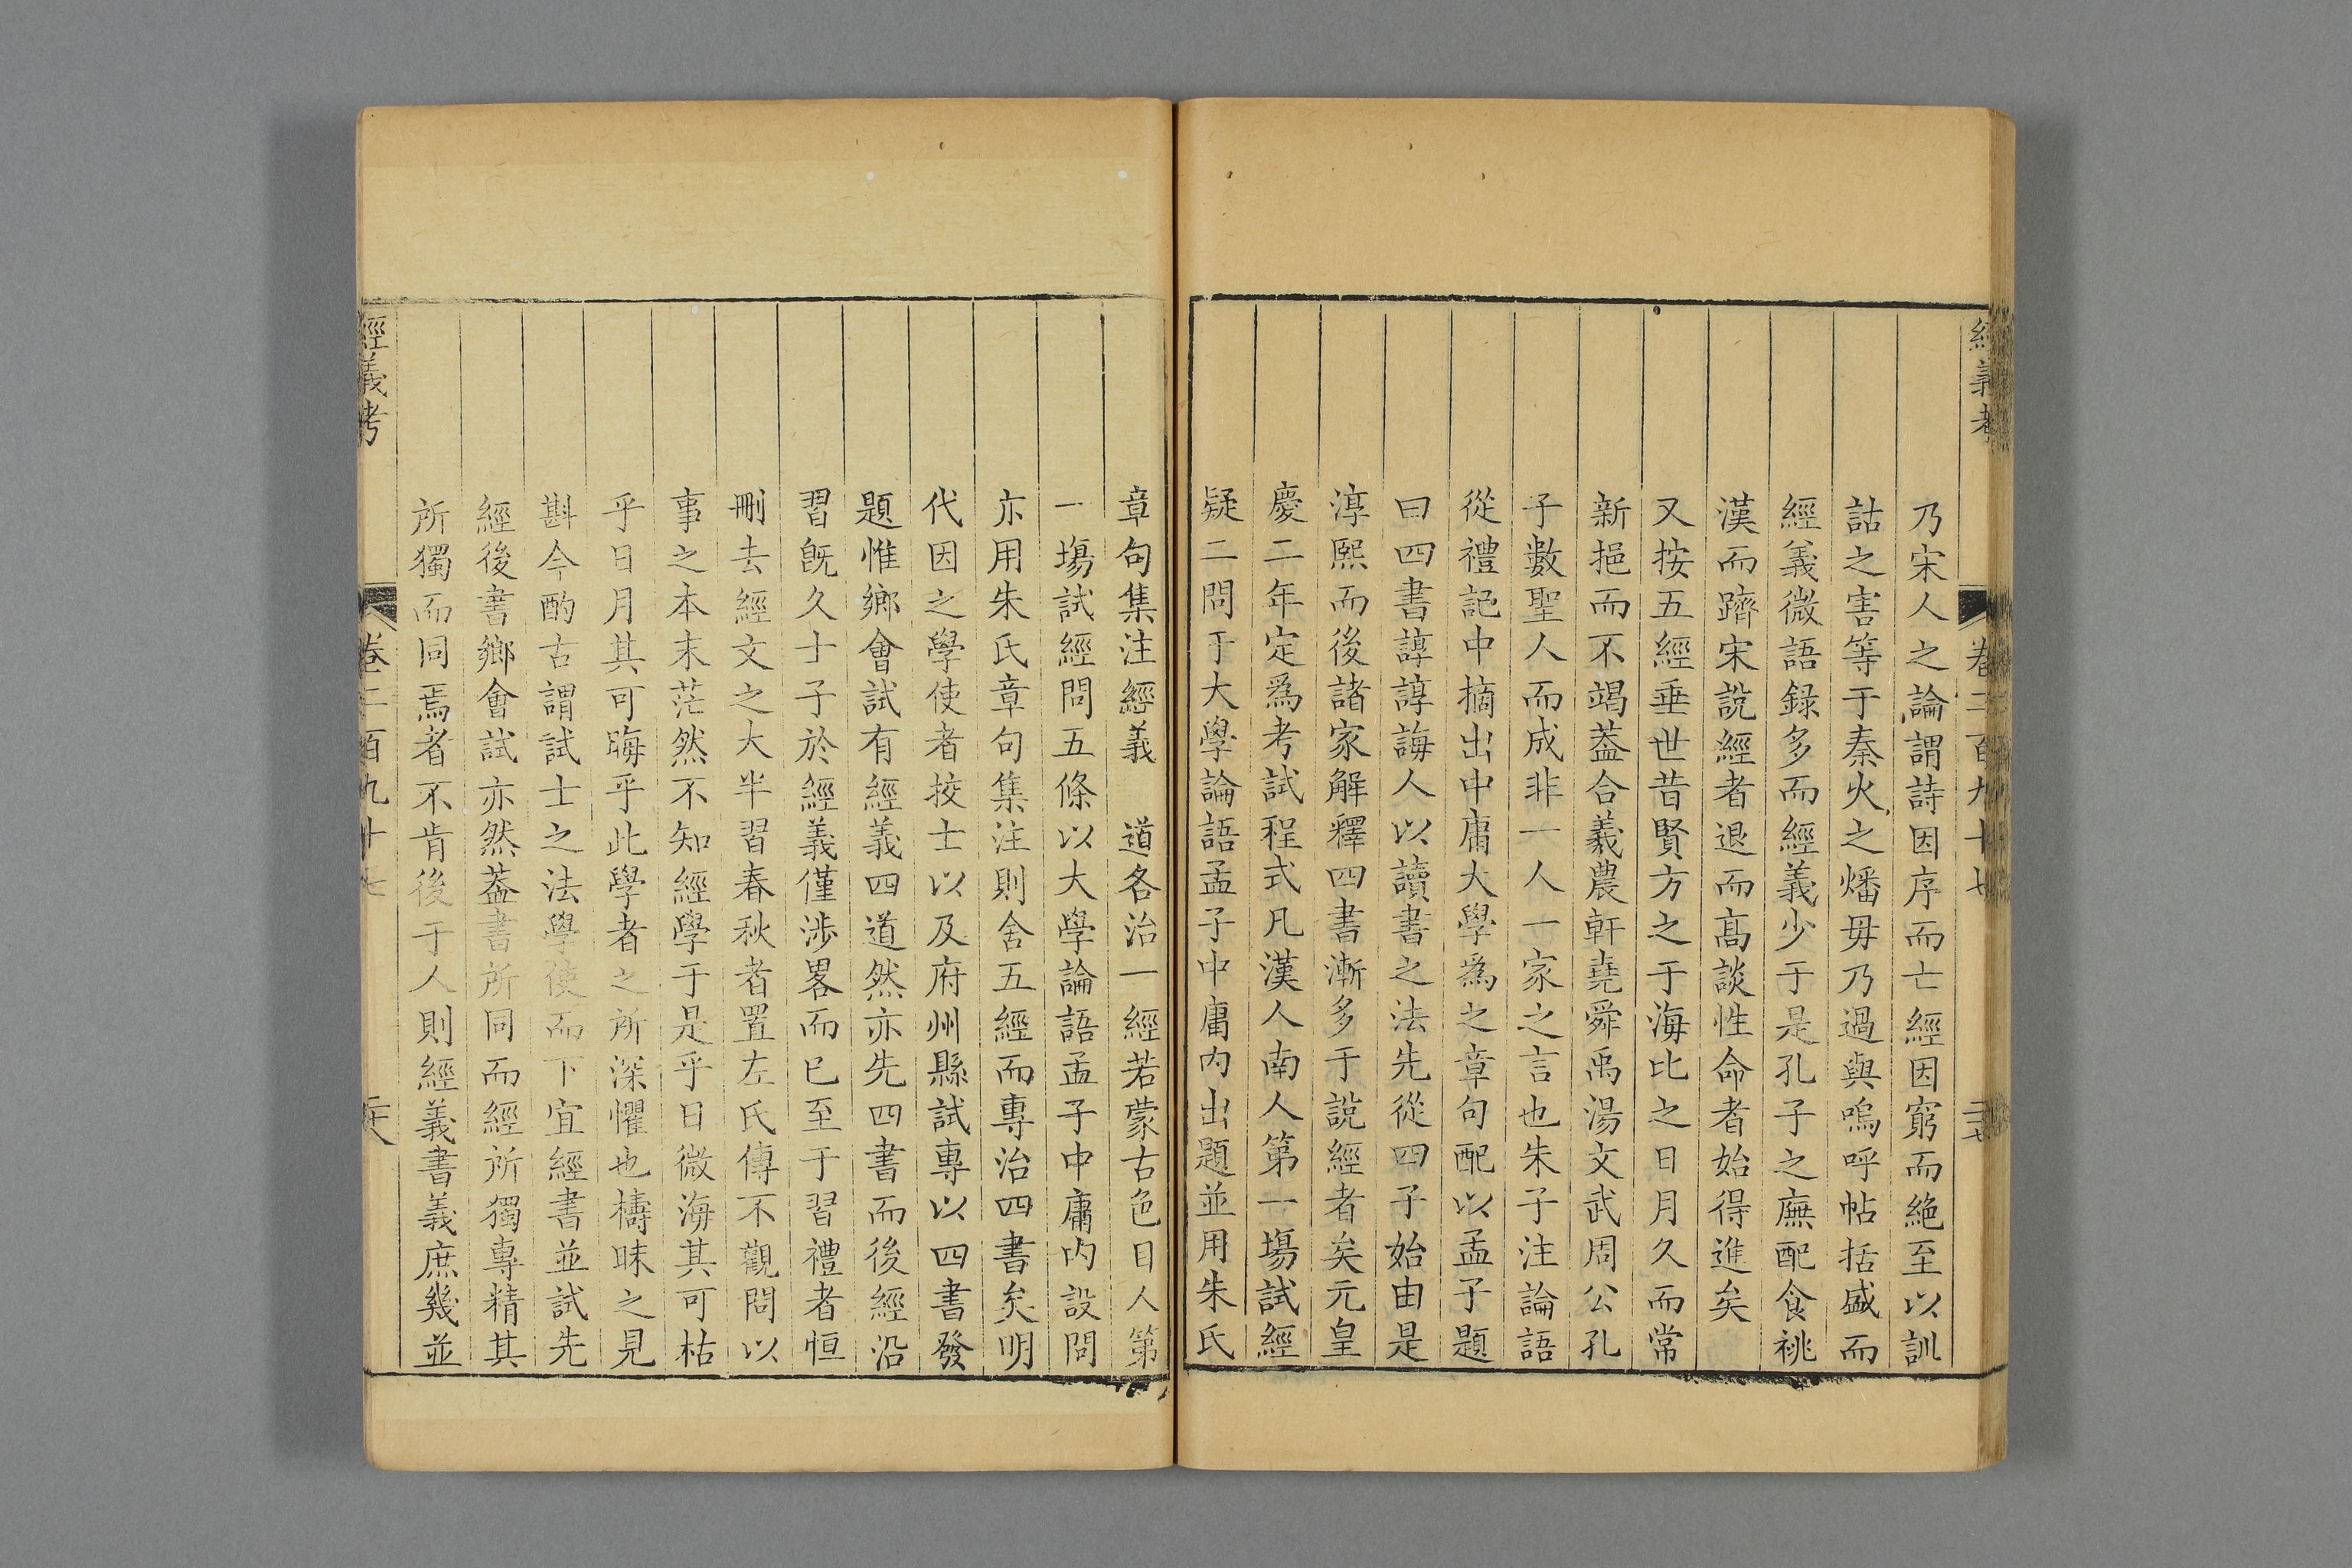 經義考 卷二百九十七 二十七
乃宋人之論謂詩因序而亡經因窮而絶至以訓
詁之害等于秦火之燔毋乃過與嗚呼帖括盛而
經義微語録多而經義少于是孔子之廡配食祧
漢而躋宋說經者退而髙談性命者始得進矣
又按五經垂世昔賢方之于海比之日月久而常
新挹而不竭葢合羲農軒堯舜禹湯文武周公孔
子數聖人而成非一人一家之言也朱子注論語
從禮記中摘出中庸大學爲之章句配以孟子題
曰四書諄諄誨人以讀書之法先從四子始由是
淳熙而後諸家解釋四書漸多于說經者矣元皇
慶二年定爲考試程式凡漢人南人第一塲試經
疑二問于大學論語孟子中庸内出題並用朱氏
章句集注經義 道各治一經若蒙古色目人第
一塲試經問五條以大學論語孟子中庸内設問
亦用朱氏章句集注則舍五經而專治四書矣明
代因之學使者挍士以及府州縣試專以四書發
題惟鄉會試有經義四道然亦先四書而後經沿
習旣久士子於經義僅涉畧而已至于習禮者恒
刪去經文之大半習春秋者置左氏傳不觀問以
事之本末茫然不知經學于是乎日微海其可枯
乎日月其可晦乎此學者之所深懼也檮昧之見
斟今酌古謂試士之法學使而下宜經書並試先
經後書鄉會試亦然葢書所同而經所獨專精其
所獨而同焉者不肯後于人則經義書義庶幾並
經義考 卷二百九十七 二十八